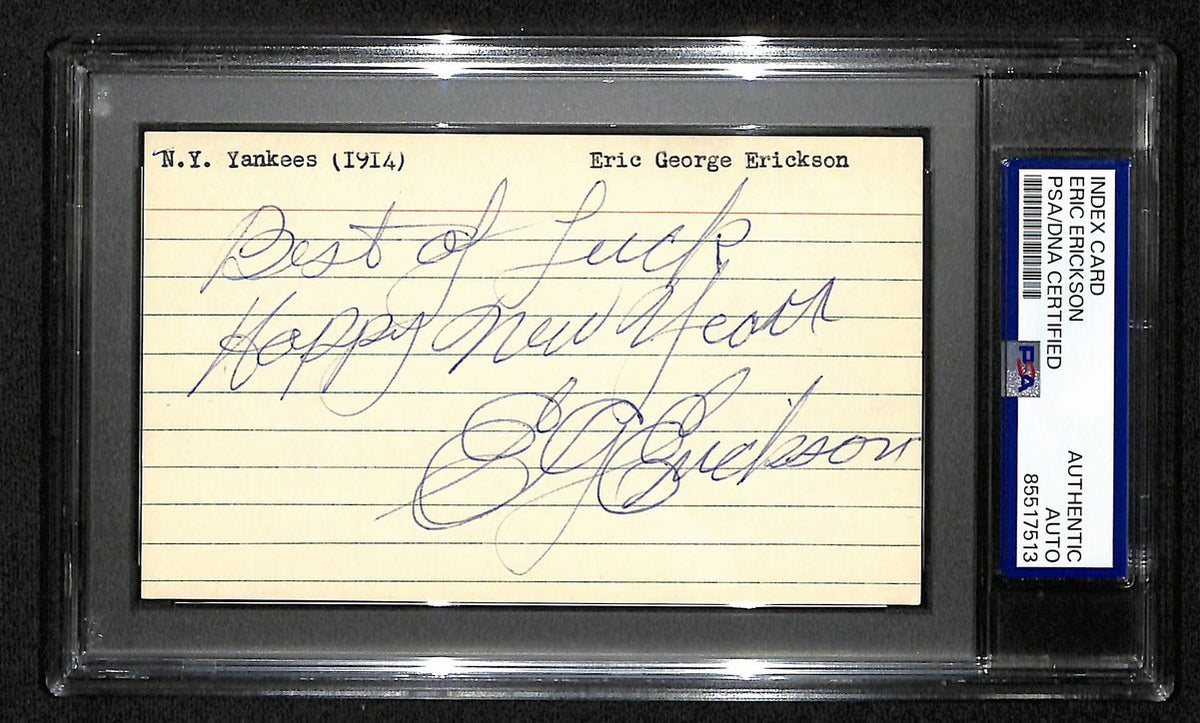 N.Y. Yankees (I9I4) Eric George Erickson
Best of Luck
Happy New Year
EG Erickson
INDEX CARD
ERIC ERICKSON
PSA/DNA CERTIFIED
PSA
AUTHENTIC
AUTO
85517513